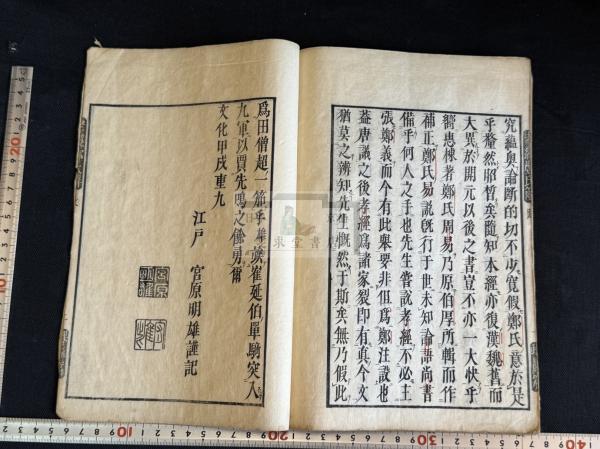 究蘊奧論斷的切不少寬假鄭氏意於是
乎釐然昭晢矣随知本經亦復漢魏舊而
大異於開元以後之書豈不亦一大快乎
嚮惠棟著鄭氏周易乃原伯厚所輯而作
補正鄭氏易説旣行于世未知論語尚書
備乎何人之手也先生嘗説孝經不必主
張鄭義而今有此舉要非但爲鄭注設也
蓋唐議之後孝經爲諸家裂即有眞今文
猶莫之辨知先生慨然于斯矣無乃假此
爲田僧超一笳乎雄
崔延伯單騎突入
九軍以賈先鳴之
勇爾
文化甲戌重九
江戸 宮原明雄謹記
求堂書